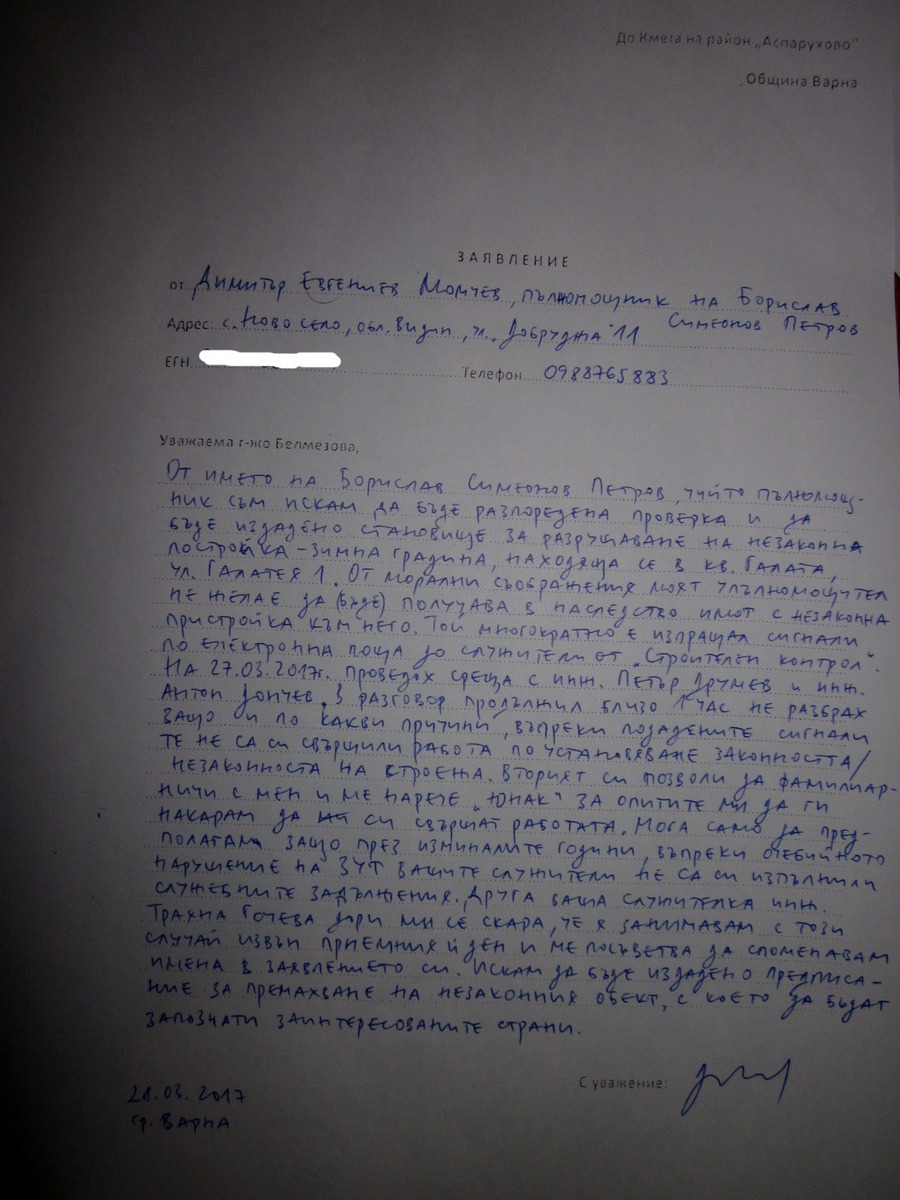 До Кмета на район „Аспарухово"
Община Варна
ЗАЯВЛЕНИЕ
от Димитър Евгениев Момчев, пълномощник на Борислав
Симеонов Петров
Адрес: с. Ново село, обл. Видин, ул. „Добруджа" 11
ЕГН
Телефон 0988765883
Уважаема г-жо Белмезова,
От името на Борислав Симеонов Петров, чийто пълномощ-
ник съм искам да бъде разпоредена проверка и да
бъде издадено становище за разрушаване на незаконна
постройка - зимна градина, находяща се в кв. Галата,
ул. Галатея 1. От морални съображения моят упълномощител
не желае да (бъде) получава в наследство имот с незаконна
пристройка към него. Той многократно е изпращал сигнали
по електронна поща до служители от „Строителен контрол".
На 27.03.2017г. проведох среща с инж. Петър Друмев и инж.
Антон Дончев. В разговор продължил близо 1 час не разбрах
защо и по какви причини, въпреки подадените сигнали
те не са си свършили работа по установяване законността/
незаконноста на строежа. Вторият си позволи да фамилиар-
ничи с мен и ме нарече „юнак" за опитите ми да ги
накарам да си свършат работата. Мога само да пред-
полагам защо през изминалите години, въпреки очебийното
нарушение на ЗУТ вашите служители не са си изпълнили
служебните задължения. Друга ваша служителка инж.
Трахна Гочева дори ми се скара, че я занимавам с този
случай извън приемния ѝ ден и ме посъветва да споменавам
имена в заявлението си. Искам да бъде издадено предписа-
ние за премахване на незаконния обект, с което да бъдат
запознати заинтересованите страни.
С уважение:
28.03.2017
гр. Варна